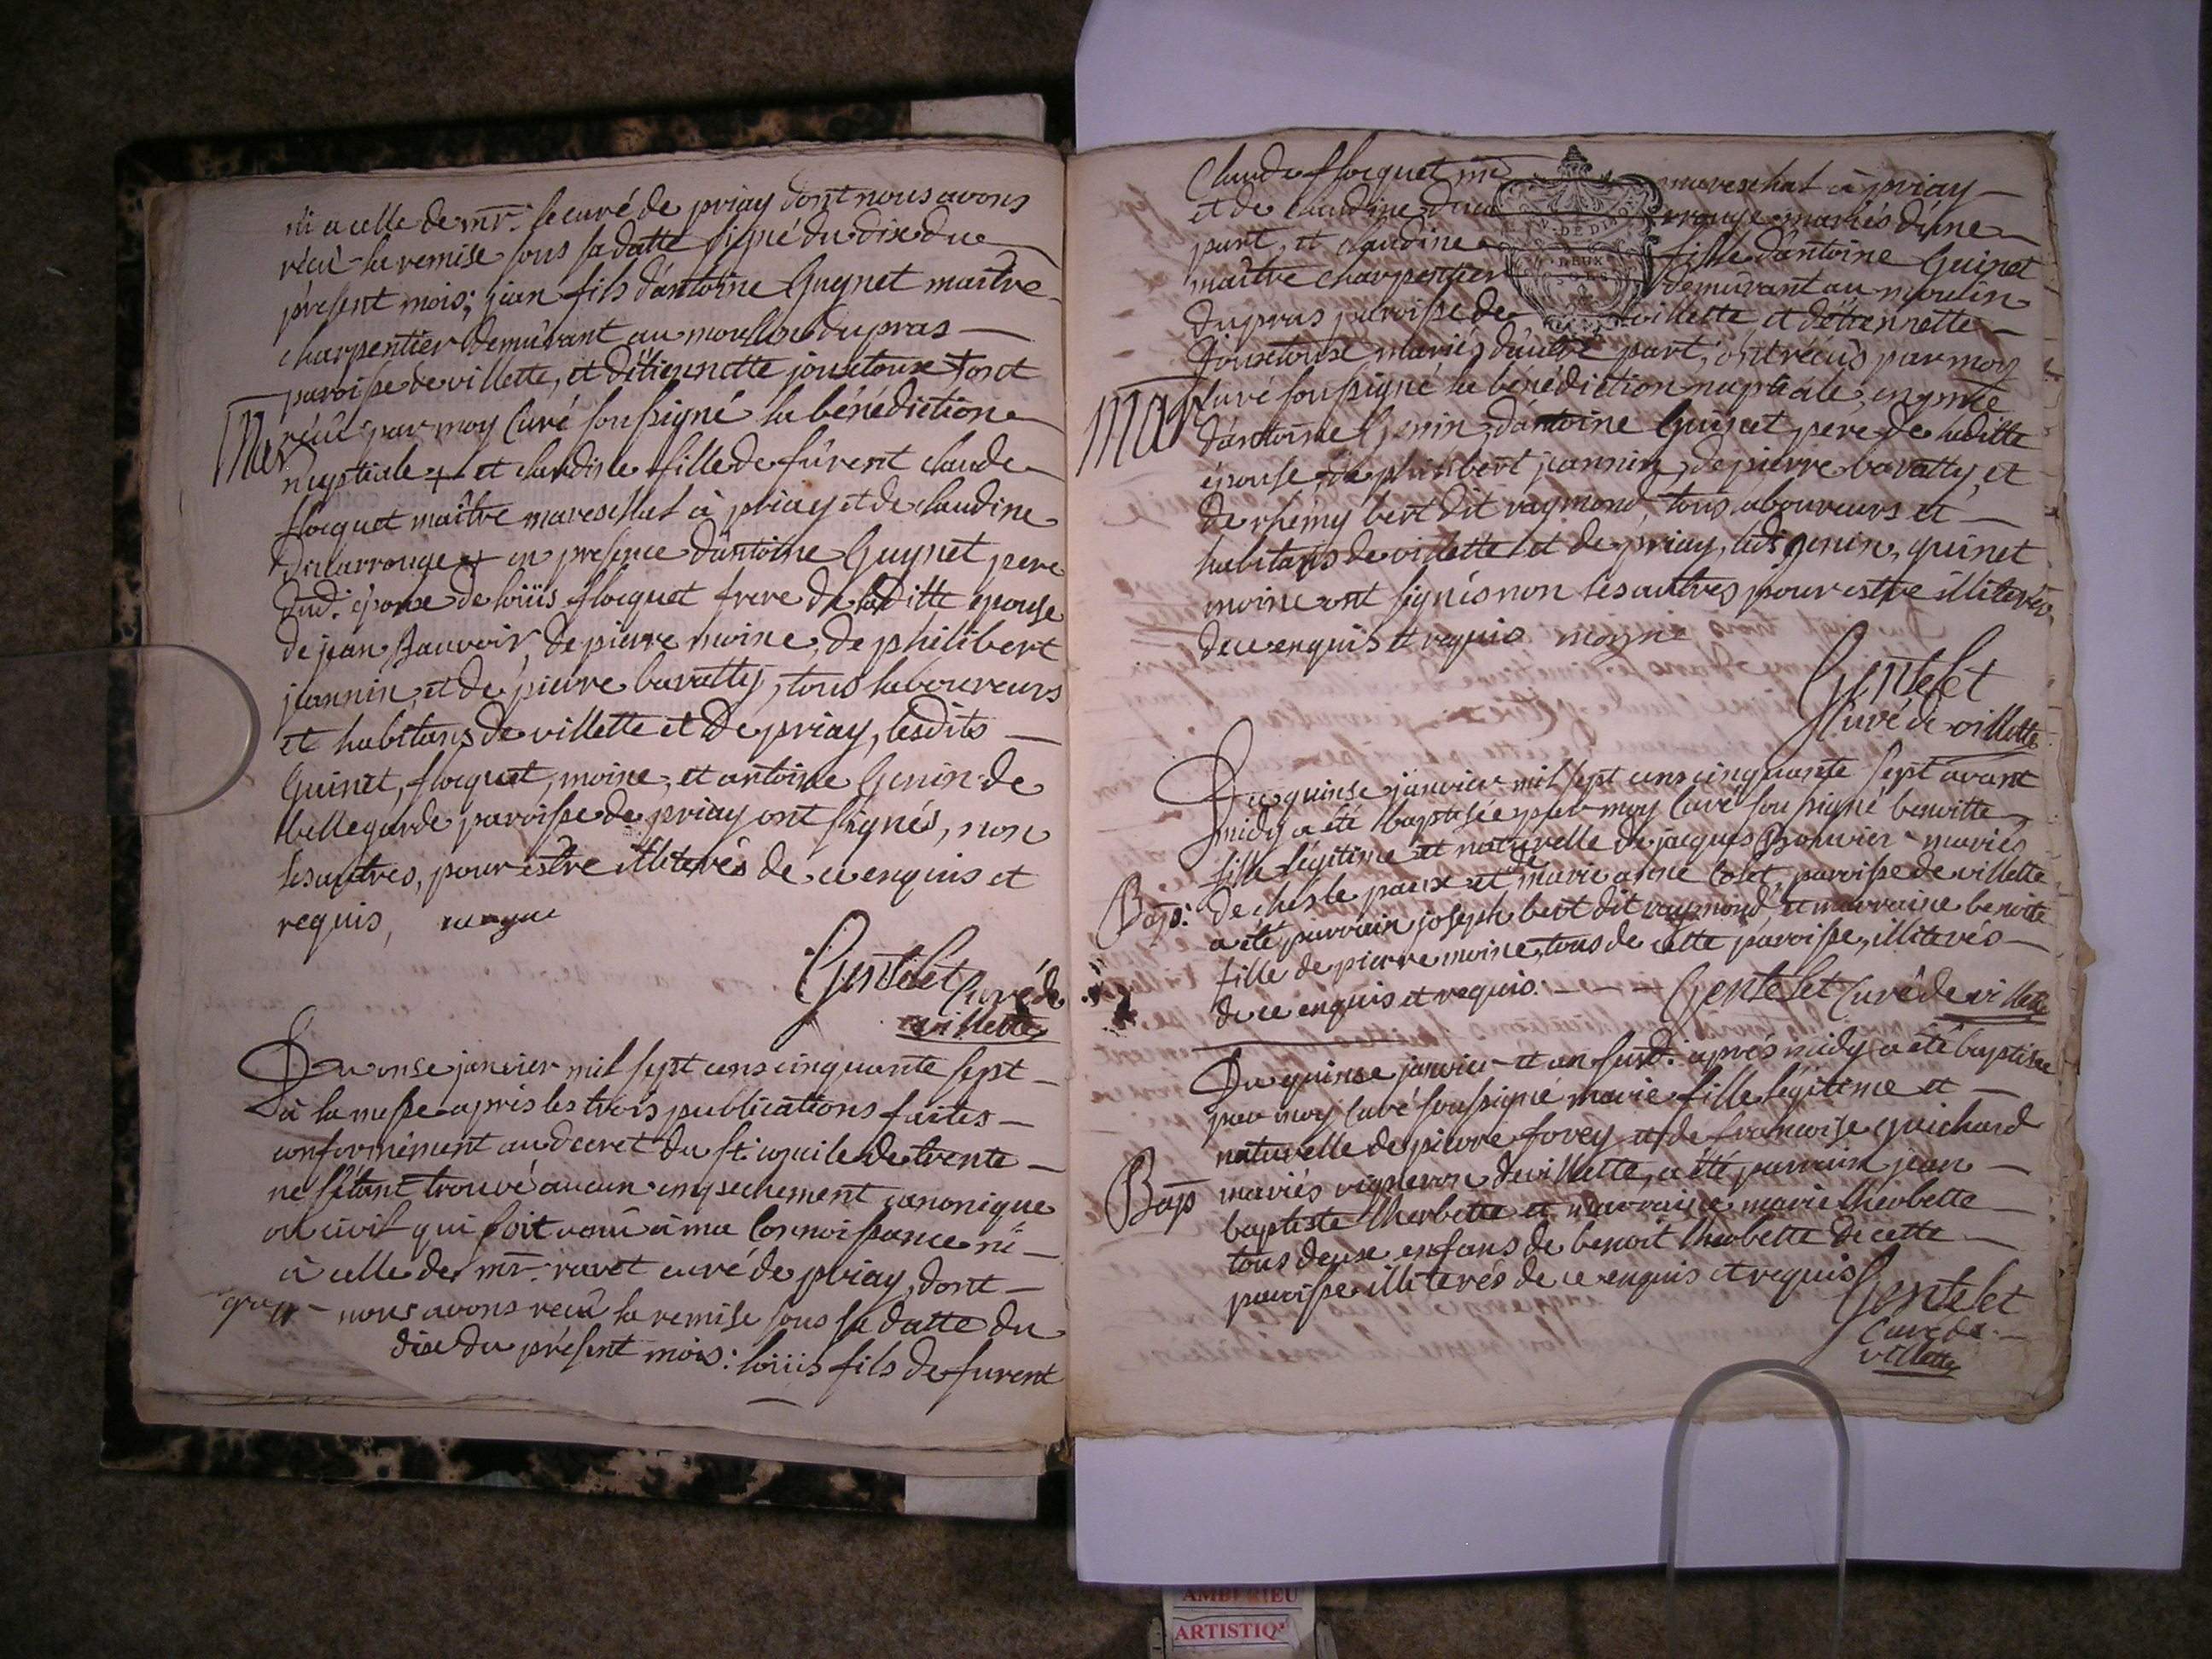 ni a celle de mr. le curé de priay dont nous avons
récû la remise sous sa datte signé du dix du
présent mois; jean fils d'antoine Guynet maître
charpentier demûrant au moulin dupras
paroisse de villette, et d'étiennette jousetoux + ont
Mar récû par moy Curé soussigné la bénédiction
nuptiale + et claudine fille de fûrent claude
flocquet maître mareschal à priay et de claudine
+ en presence d'antoine Guynet pere
dud. epoux de loüis flocquet frere de laditte epouse
de jean Bauvoir, de pierre moine, de philibert
jeannin, et de pierre baratty, tous laboureurs
et habitans de villette et de priay, lesdits
Guinet, flocquet, moine, et antoine Genin de
bellegarde paroisse de priay ont signés, non
les autres, pour estre illiterés de ce enquis et
requis,
Gentelet Curé de
villette
Du onse janvier mil sept cens cinquante sept
à la messe apris les trois publications faites
conformément au decret du st. concile de trente
ne s'étant trouvé aucun empechement canonique
ou civil qui soit venû à ma Connoissance ni
à celle de mr. ravet curé de priay, dont
nous avons recû la remise sous sa datte du
dix du présent mois: loüis fils de furent
Claude flocquet mareschal à priay
et de claudine mariés d'une
part, et claudine fille d'antoine Guinet
maître charpentier demûrant au moulin
dupras paroisse de villette et d'étiennette
Jousetoux mariés d'autre part, ont récûs par moy
Mar Curé soussigné la bénédiction nuptiale, en
d'antoine Genin, d'antoine Guinet pere de laditte
épouse, de philibert jeannin, de pierre baratty, et
de rhémy bert dit raymond, tous laboureurs et
habitans de villette et de priay, lesd. genin, guinet
moine ont signés non les autres pour estre illiterés
de ce enquis et requis moyne
Gentelet
Curé de villette
Du quinse janvier mil sept cens cinquante sept avant
midy a été baptisée par moy Curé soussigné benoitte
fille légitime et naturelle de jacques Bouvier mariés
Bap: de et de marie anne Colet, paroisse de villette
a été parrain joseph bert dit raymond, et marraine benoite
fille de pierre moine, tous de cette paroisse, illiterés
de ce enquis et requis. Gentelet Curé de villette
Du quinse janvier et an susd. après midy a été baptisée
par moy Curé soussigné marie fille légitime et
naturelle de pierre forey et de francoise guichard
Bap mariés vigneron de villette, a été parrain jean
baptiste therbette et marraine marie therbette
tous deux enfans de benoit therbette de cette
paroisse illiterés de ce enquis et requis
Gentelet
Curé de
villette
AMBERIEU
ARTISTIQ